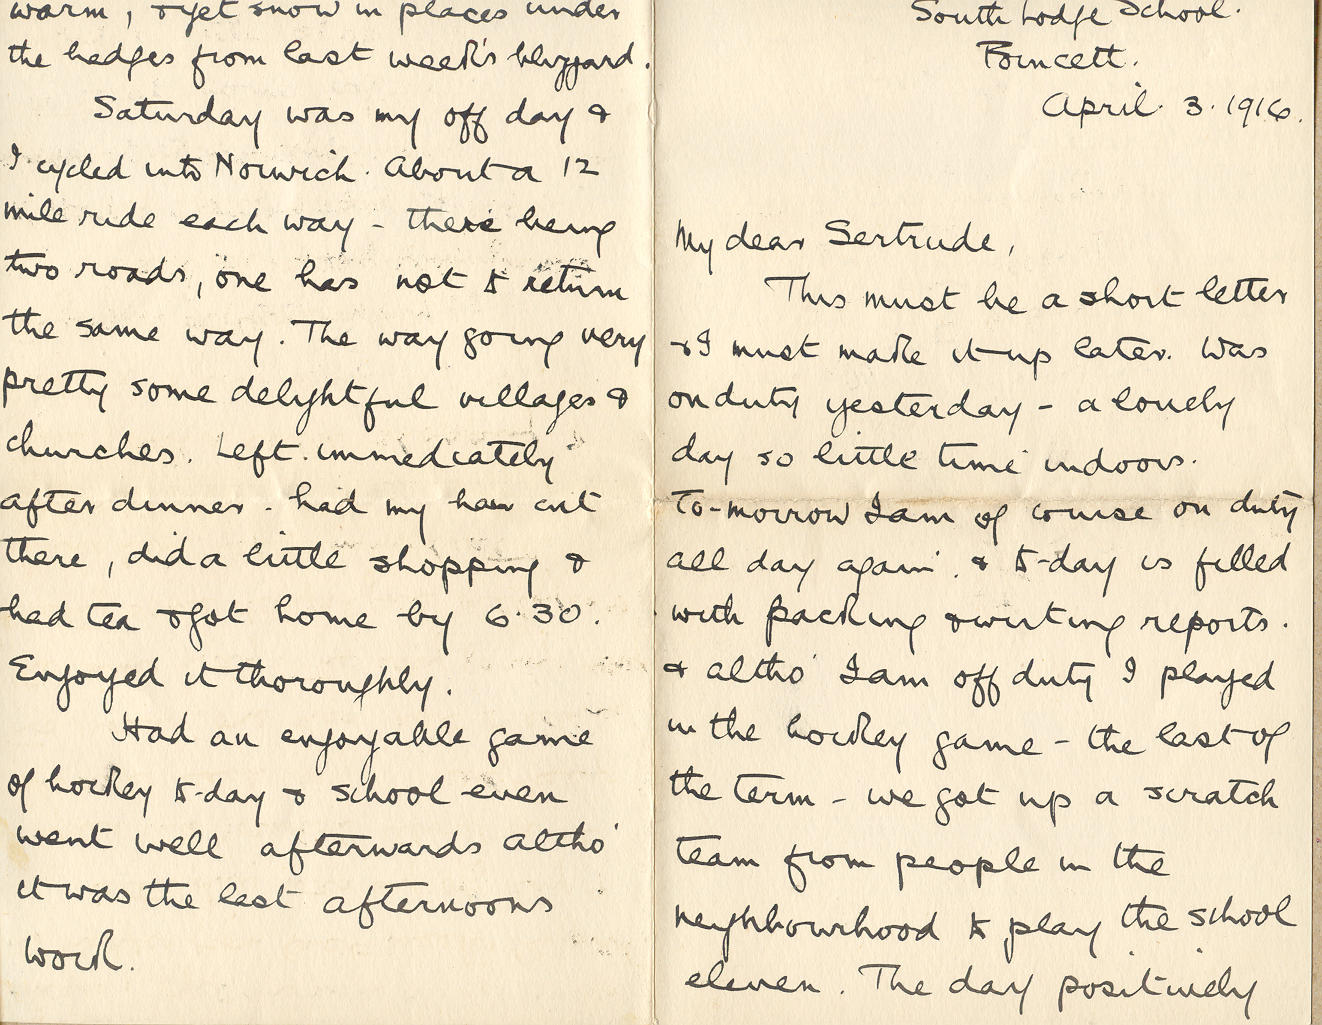 South Lodge School.
Founcett.
April. 3. 1916.
My dear Gertrude,
This must be a short letter
& I must make it up later. Was
on duty yesterday - a lovely
day so little time indoors.
To-morrow I am of course on duty
all day again. & to-day is filled
with packing & writing reports.
& altho' I am off duty I played
in the hockey game - the last of
the term - we got up a scratch
team from people in the
neighbourhood to play the school
eleven. The day positively
warm, & yet snow in places under
the hedges from last week's blizzard.
Saturday was my off day &
I cycled into Norwich. About a 12
mile ride each way - there being
two roads, one has not to return
the same way. The way going very
pretty some delightful villages &
churches. Left immediately
after dinner - had my hair cut
there, did a little shopping &
had tea & got home by 6.30.
Enjoyed it thoroughly.
Had an enjoyable game
of hockey to-day & school even
went well afterwards altho'
it was the last afternoons
work.